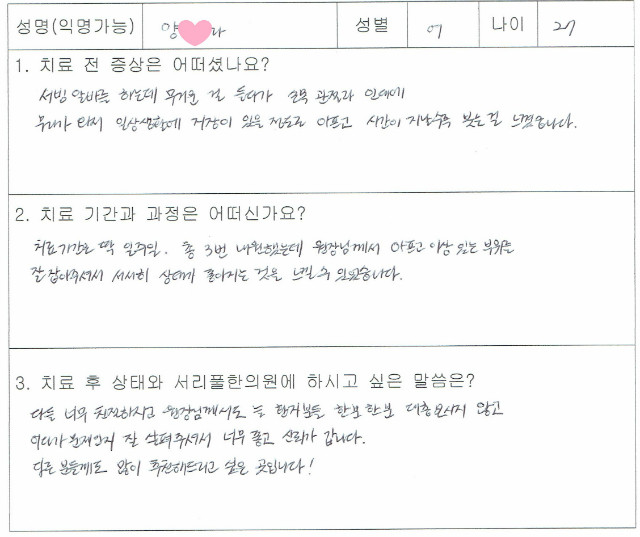 성명(익명가능) 양 라 성별 여 나이 27
1. 치료 전 증상은 어떠셨나요?
서빙 알바를 하는데 무거운 걸 들다가 손목 관절과 인대에
무리가 와서 일상생활에 지장이 있을 정도로 아프고 시간이 지날수록 붓는걸 느꼈습니다.
2. 치료 기간과 과정은 어떠신가요?
치료기간은 딱 일주일. 총 3번 내원했는데 원장님께서 아프고 이상 있는 부위를
잘 잡아주셔서 서서히 상태가 좋아지는 것을 느낄 수 있었습니다.
3. 치료 후 상태와 서리풀한의원에 하시고 싶은 말씀은?
다들 너무 친절하시고 원장님께서도 늘 환자분들 한분 한분 대충 보시지 않고
어디가 문제인지 잘 살펴주셔서 너무 좋고 신뢰가 갑니다.
다른 분들께도 많이 추천해드리고 싶은 곳입니다!